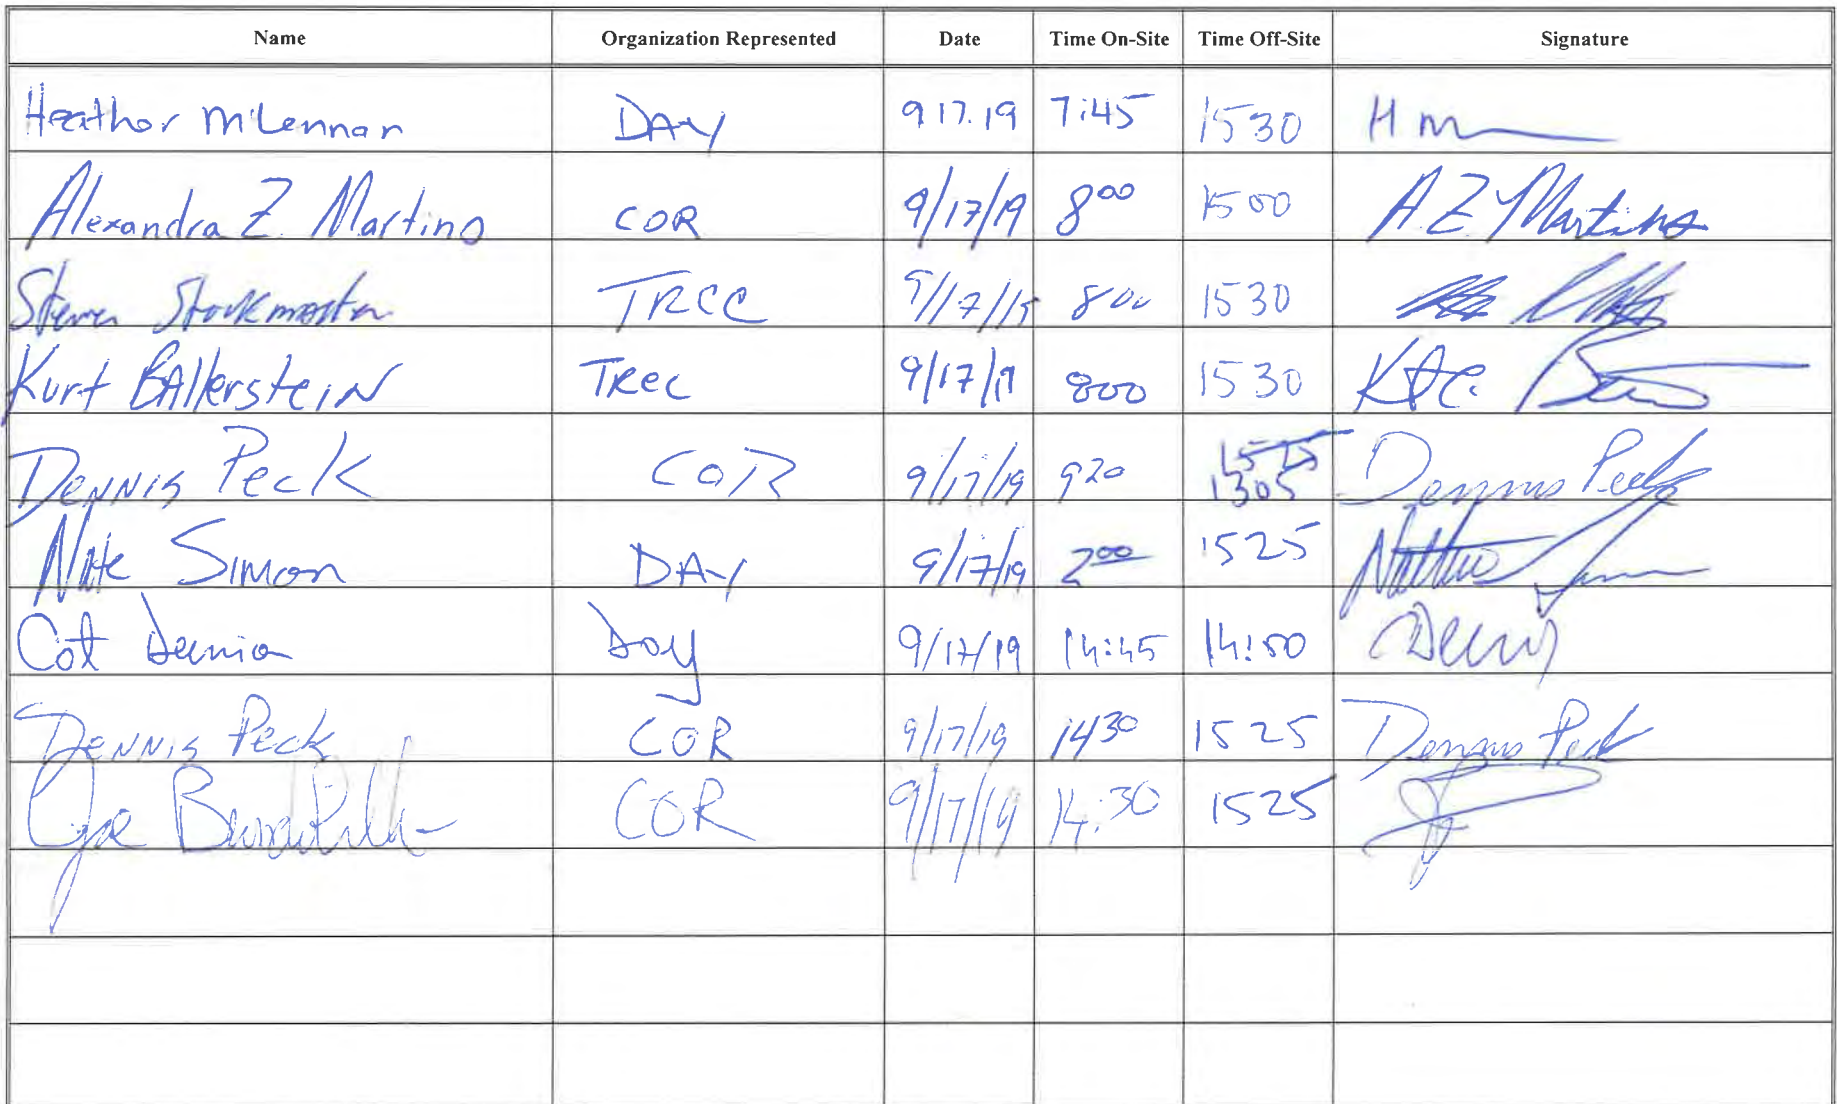 Name Organization Represented Date Time On-Site Time Off-Site Signature
Heather McLennan DAY 9 17.19 7:45 1530 H m
Alexandra Z. Martino COR 9/17/19 800 1500 A.Z. Martino
Steven Stockmaster TREC 9/17/19 800 1530
Kurt BAllersteiN TRec 9/17/19 800 1530
DENNIS Peck COR 9/17/19 920 1525 1305 Dennis Peck
Nate Simon DAY 9/17/19 200 1525
Day 9/17/19 14:45 14:50
DENNIS Peck COR 9/17/19 1430 1525 Dennis Peck
Joe COR 9/17/19 14:30 1525